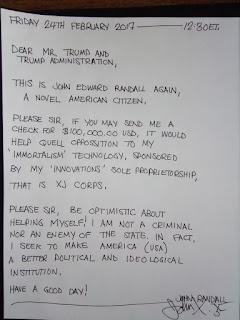 FRIDAY 24TH FEBRUARY 2017 — 12:30ET.
DEAR MR. TRUMP AND
TRUMP ADMINISTRATION,
THIS IS JOHN EDWARD RANDALL AGAIN,
A NOVEL AMERICAN CITIZEN.
PLEASE SIR, IF YOU MAY SEND ME A
CHECK FOR $100,000.00 USD, IT WOULD
HELP QUELL OPPOSSITION TO MY
'IMMORTALISM' TECHNOLOGY, SPONSORED
BY MY 'INNOVATIONS' SOLE PROPRIETORSHIP,
THAT IS XJ CORPS.
PLEASE SIR, BE OPTIMISTIC ABOUT
HELPING MYSELF! I AM NOT A CRIMINAL
NOR AN ENEMY OF THE STATE. IN FACT,
I SEEK TO MAKE AMERICA (USA)
A BETTER POLITICAL AND IDEOLOGICAL
INSTITUTION.
HAVE A GOOD DAY!
RANDALL